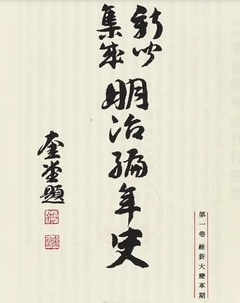 新聞集成
明治編年史
奎堂題
第一卷 維新大變革期